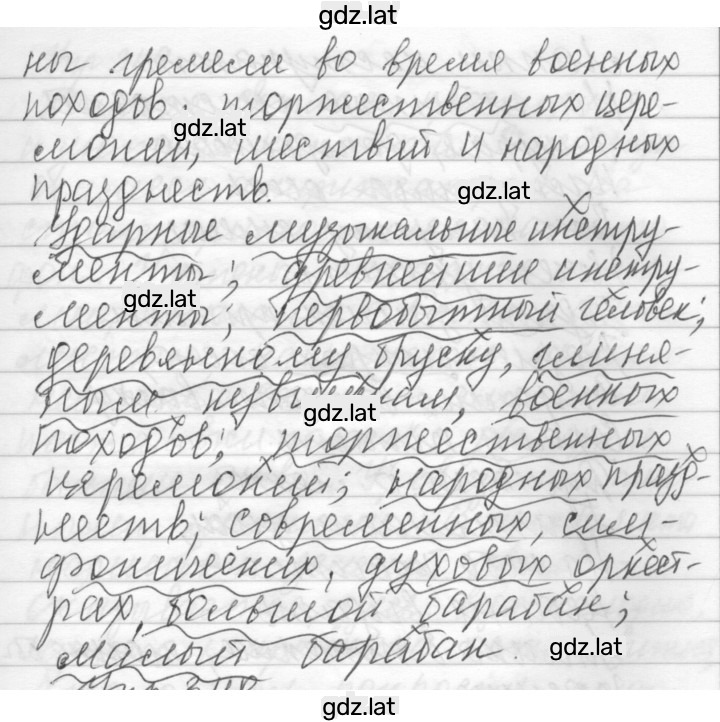 gdz.lat
ны гремели во время военных
походов. торжественных цере-
gdz.lat
моний, шествий и народных
празднеств.
gdz.lat
Ударные музыкальные инстру-
менты; древнейшие инстру-
gdz.lat
менты; первобытный человек;
деревянному бруску, глиня-
ным
gdz.lat
военных
походов; торжественных
церемоний; народных празд-
неств; современных, сим-
фонических, духовых оркест-
рах, большой барабан;
малый барабан
gdz.lat
gdz.lat